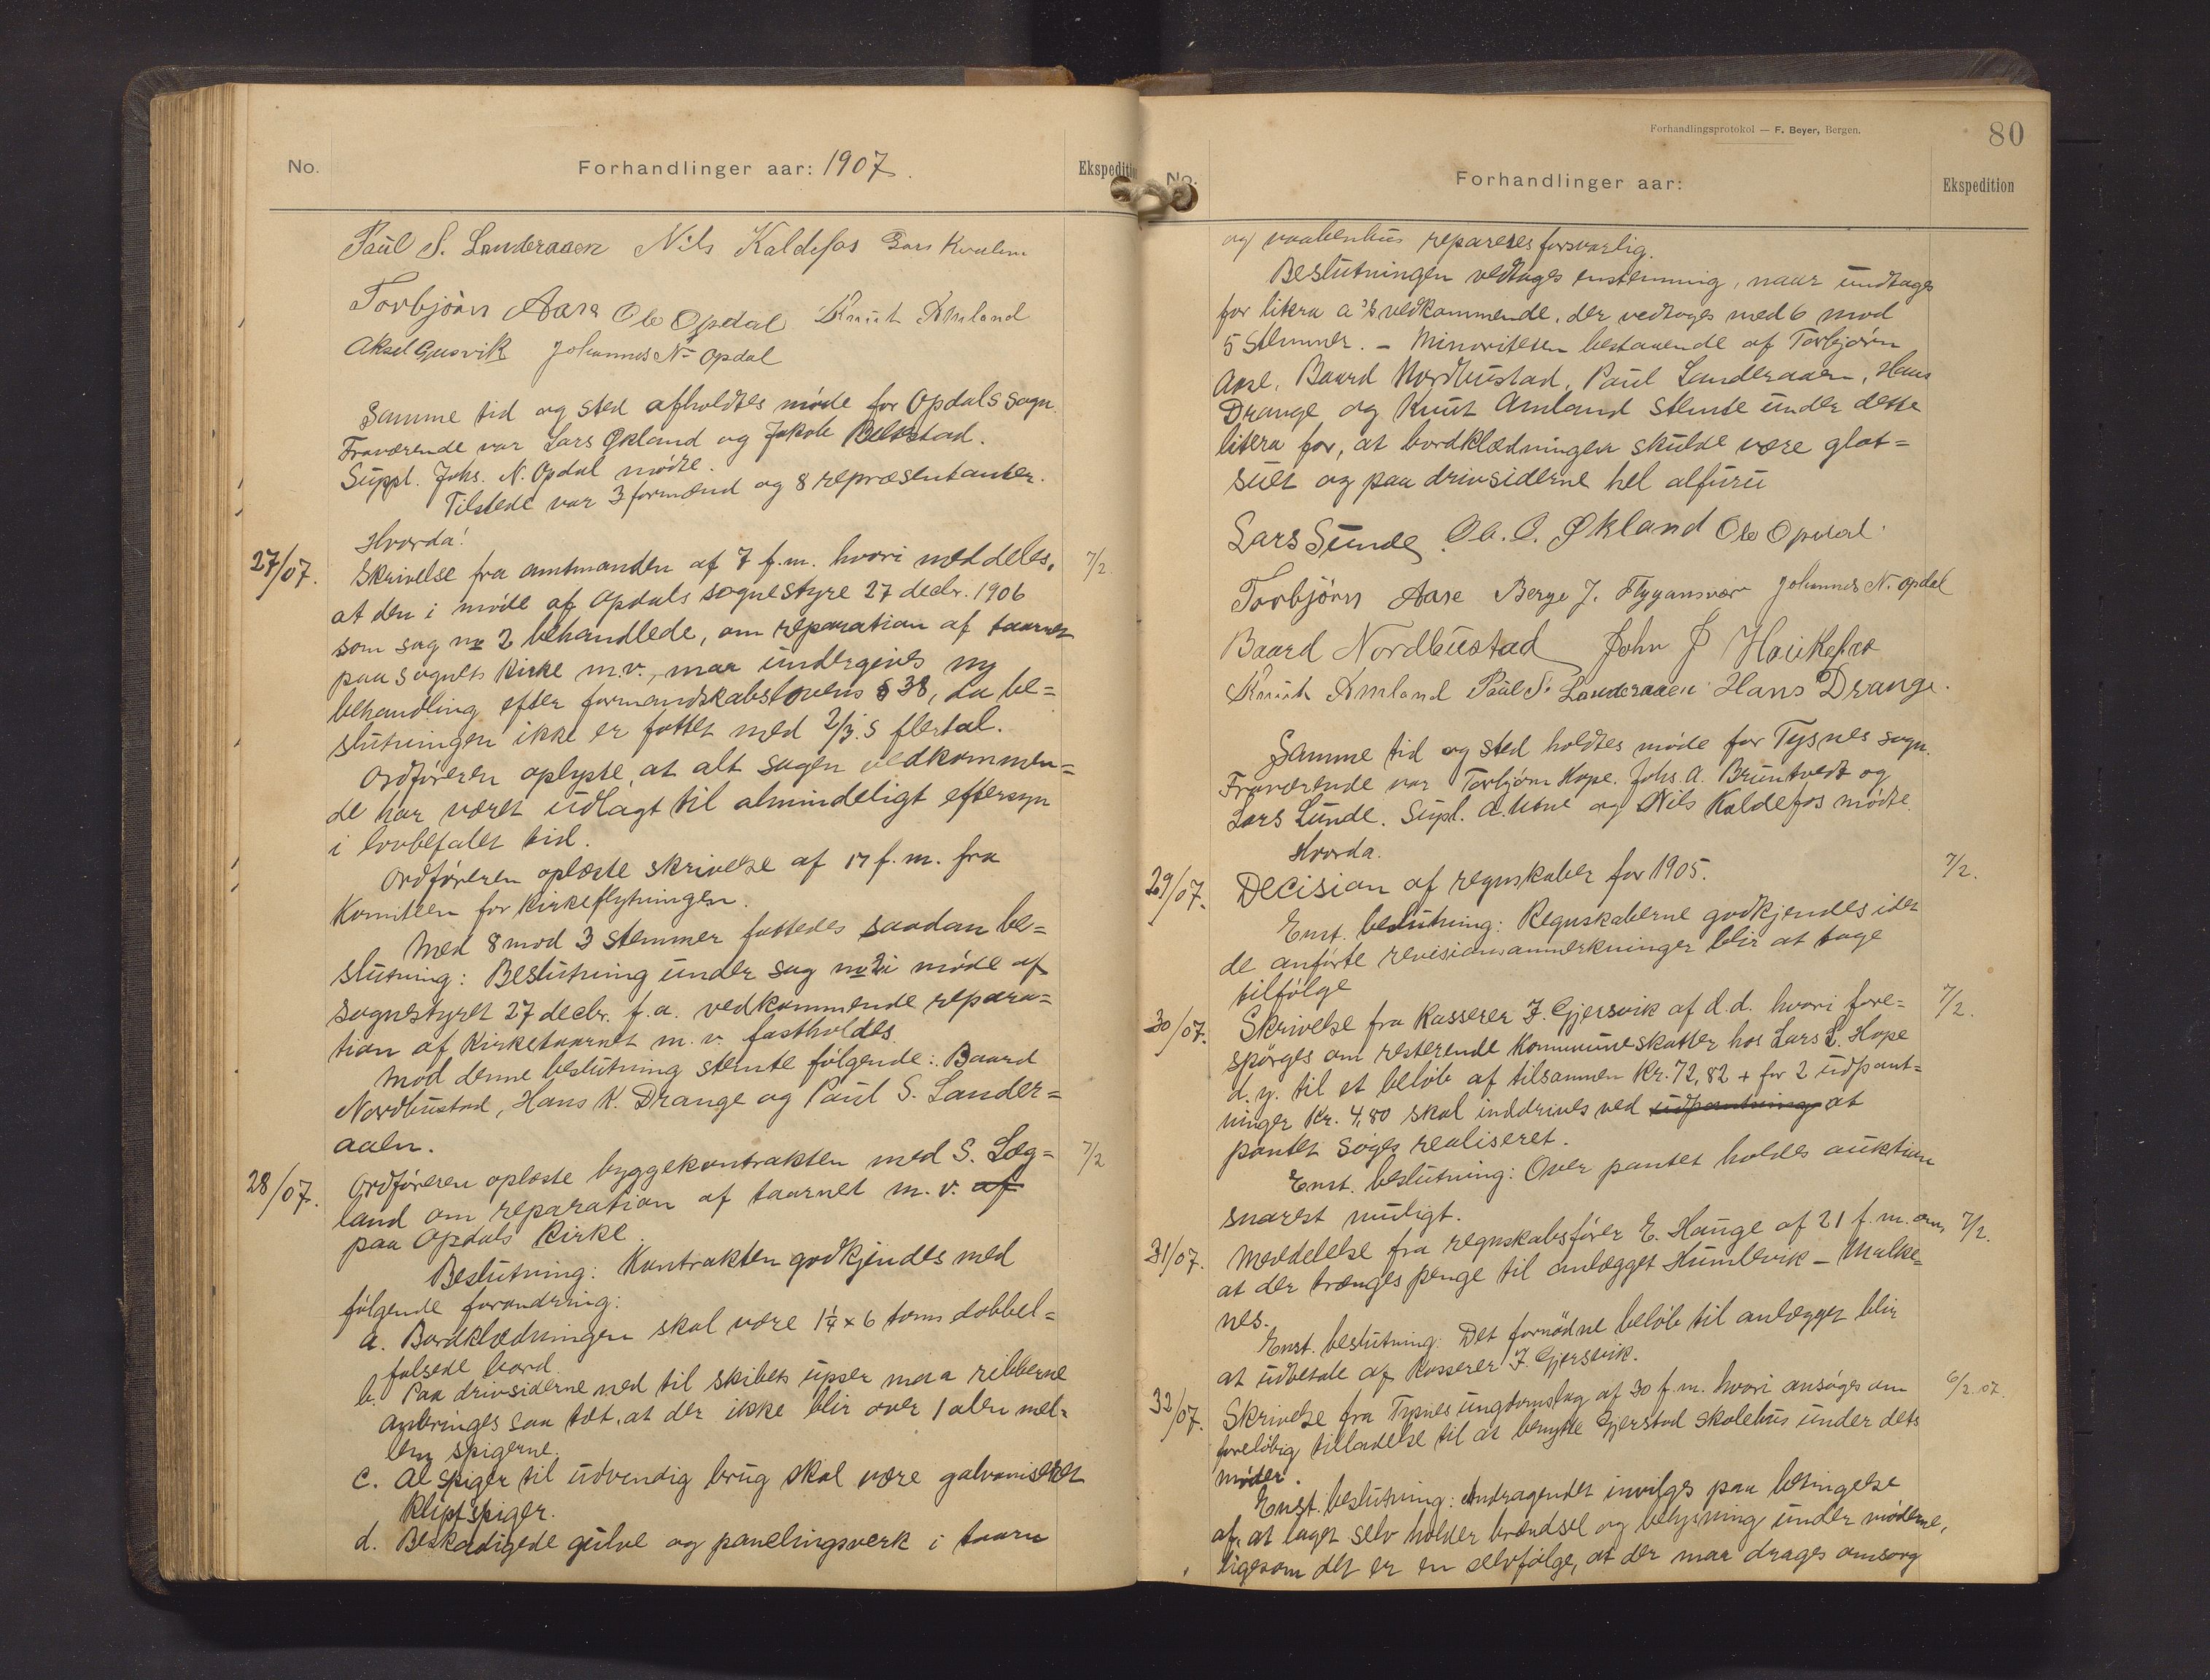 No.
Forhandlinger aar: 1907.
Ekspedition
Paul S. Landeraaen Nils Kaldefos Lars Kvalem
Torbjörn Aase Ole Opdal Knut Amland
Aksel Gusvik Johannes N. Opdal
Samme tid og sted afholdtes møde for Opdals sogn.
Fraværende var Lars Økland og Jakob
Suppl. Johs. N. Opdal mødte.
Tilstede var 3 formænd og 8 repræsentanter.
Hvorda!
27/07.
Skrivelse fra amtmanden af 7 f.m. hvori meddeles,
7/2.
at den i møde af Opdals sognestyre 27 decbr. 1906
som sag no 2 behandlede, om reparation af taarnet
paa sognets kirke m.v., maa undergives ny
behandling efter formandskabslovens § 38, da be=
slutningen ikke er fattet med 2/3.s flertal.
Ordføreren oplyste at alt sagen vedkommen=
de har været udlagt til almindeligt eftersyn
i lovbefalet tid.
Ordføreren oplæste skrivelse af 17 f.m. fra
Komiteen for kirkeflytningen.
Med 8 mod 3 stemmer fattedes saadan be=
slutning: Beslutning under sag no 2 i møde af
sognestyret 27 decbr. f.a. vedkommende repara=
tion af kirketaarnet m.v. fastholdes.
Mod denne beslutning stemte følgende: Baard
Nordbustad, Hans K. Drange og Paul S. Lander=
aaen.
28/07.
Ordføreren oplæste byggekontrakten med S. Læg=
7/2
land om reparation af taarnet m.v. af
paa Opdals kirke.
Beslutning: Kontrakten godkjendes med
følgende forandring:
a. Bordklædningen skal være 1¼ × 6 toms dobbel=
falsede bord.
b. Paa drivsiderne ned til skibets upser maa ribberne
anbringes saa tæt, at der ikke blir over 1 alen mel=
lem spigerne.
c. Al spiger til udvendig brug skal være galvaniseret
klipt spiger.
d. Beskadigede gulve og panelingsverk i taarn
Forhandlingsprotokol — F. Beyer, Bergen.
80
No.
Forhandlinger aar:
Ekspedition
og vaabenhus repareres forsvarlig.
Beslutningen vedtages enstemmig, naar undtages
for litera a's vedkommende, der vedtoges med 6 mod
5 stemmer. - Minoriteten bestaaende af Torbjørn
Aase, Baard Nordbustad, Paul Landeraaen, Hans
Drange og Knut Amland stemte under dette
litera for, at bordklædningen skulde være glat=
suet og paa drivsiderne hel alfuru
Lars Sunde, Ole O. Økland Ole Opdal.
Torbjörn Aase Berge J. Flygansvær Johannes N. Opdal
Baard Nordbustad John J Haukefær
Knut Amland Paul S. Landeraaen Hans Drange.
Samme tid og sted holdtes møde for Tysnes sogn.
Fraværende var Torbjørn Hope. Johs. A. Bruntvedt og
Lars Lunde. Supl. A. Utne og Nils Kaldefos mødte.
Hvorda.
29/07.
Decision af regnskaber for 1905.
7/2.
Enst. beslutning: Regnskaberne godkjendes idet
de anførte revisionsanmerkninger blir at tage
tilfølge
30/07.
Skrivelse fra Kasserer J. Gjersvik af d.d. hvori fore=
7/2.
spørges om resterende Kommuneskatter hos Lars L. Hope
d.y. til et beløb af tilsammen Kr. 72,82 + for 2 udpant=
ninger Kr. 4,80 skal inddrives ved udpantning at
pantet søges realiseret.
Enst. beslutning: Over pantet holdes auktion
snarest muligt.
31/07.
Meddelelse fra regnskabsfører E. Hauge af 21 f.m. om,
7/2.
at der trænges penge til anlægget Humlevik - Malke=
nes.
Enst. beslutning: Det fornødne beløb til anlægget blir
at udbetale af kasserer J. Gjersvik.
32/07.
Skrivelse fra Tysnes ungdomslag af 30 f.m. hvori ansøges om
6/2.07.
foreløbig tilladelse til at benytte Gjerstad skolehus under dets
møder.
Enst. beslutning: Andragendet invilges paa betingelse
af, at laget selv holder brændsel og belysning under møderne,
ligesom det er en selvfølge, at der maa drages omsorg